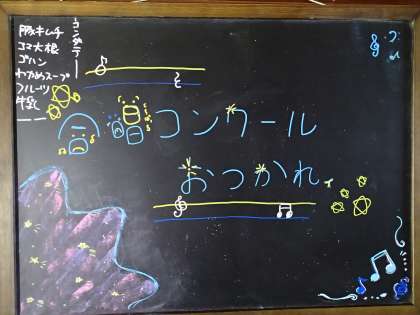 豚キムチ
ゴマ大根
ゴハン
わかめスープ
フルーツ
牛乳
コンクール
おつかれ